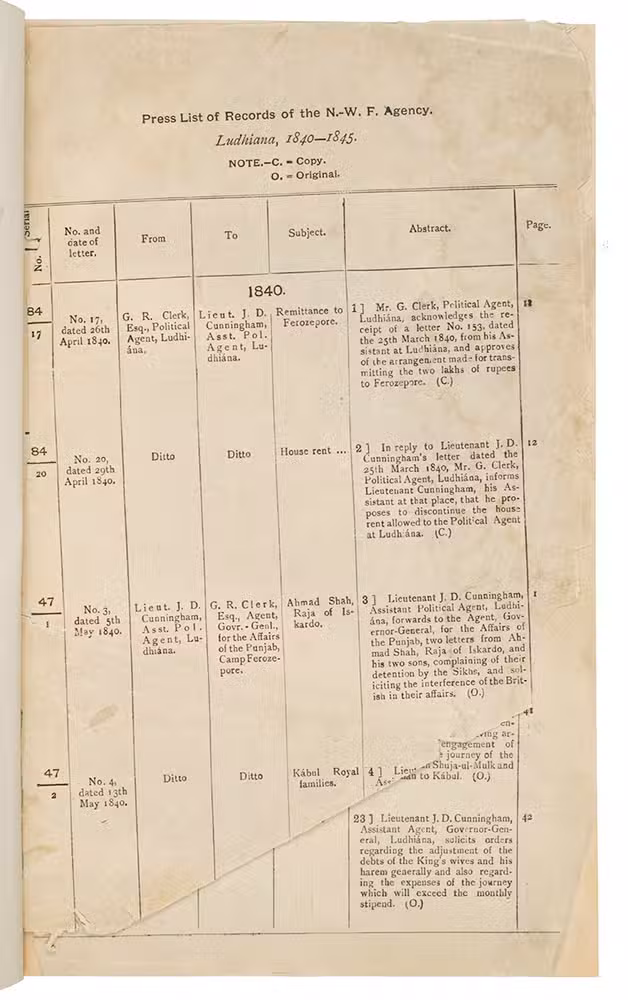 Press List of Records of the N.-W. F. Agency.
Ludhiana, 1840—1845.
NOTE.—C. = Copy.
O. = Original.
Serial No.
No. and
date of
letter.
From
To
Subject.
Abstract.
Page.
1840.
84
17
No. 17,
dated 26th
April 1840.
G. R. Clerk,
Esq., Political
Agent, Ludhi-
ána.
Lieut. J. D.
Cunningham,
Asst. Pol.
Agent, Lu-
dhiána.
Remittance to
Ferozepore.
1] Mr. G. Clerk, Political Agent,
Ludhiána, acknowledges the re-
ceipt of a letter No. 153, dated
the 25th March 1840, from his As-
sistant at Ludhiána, and approves
of the arrangement made for trans-
mitting the two lakhs of rupees
to Ferozepore. (C.)
84
20
No. 20,
dated 29th
April 1840.
Ditto
Ditto
House rent ...
2] In reply to Lieutenant J. D.
Cunningham's letter dated the
25th March 1840, Mr. G. Clerk,
Political Agent, Ludhiána, informs
Lieutenant Cunningham, his As-
sistant at that place, that he pro-
poses to discontinue the house
rent allowed to the Political Agent
at Ludhiána. (C.)
12
47
1
No. 3,
dated 5th
May 1840.
Lieut. J. D.
Cunningham,
Asst. Pol.
Agent, Lu-
dhiána.
G. R. Clerk,
Esq., Agent,
Govr.-Genl.,
for the Affairs
of the Punjab,
Camp Feroze-
pore.
Ahmad Shah,
Raja of Is-
kardo.
3] Lieutenant J. D. Cunningham,
Assistant Political Agent, Ludhi-
ána, forwards to the Agent, Gov-
ernor-General, for the Affairs of
the Punjab, two letters from Ah-
mad Shah, Raja of Iskardo, and
his two sons, complaining of their
detention by the Sikhs, and sol-
iciting the interference of the Brit-
ish in their affairs. (O.)
1
47
2
No. 4,
dated 13th
May 1840.
Ditto
Ditto
Kábul Royal
families.
4] Lieut
As
en-
ing ar-
engagement of
journey of the
Shuja-ul-Mulk and
to Kábul. (O.)
41
23] Lieutenant J. D. Cunningham,
Assistant Agent, Governor-Gen-
eral, Ludhiána, solicits orders
regarding the adjustment of the
debts of the King's wives and his
harem generally and also regard-
ing the expenses of the journey
which will exceed the monthly
stipend. (O.)
42